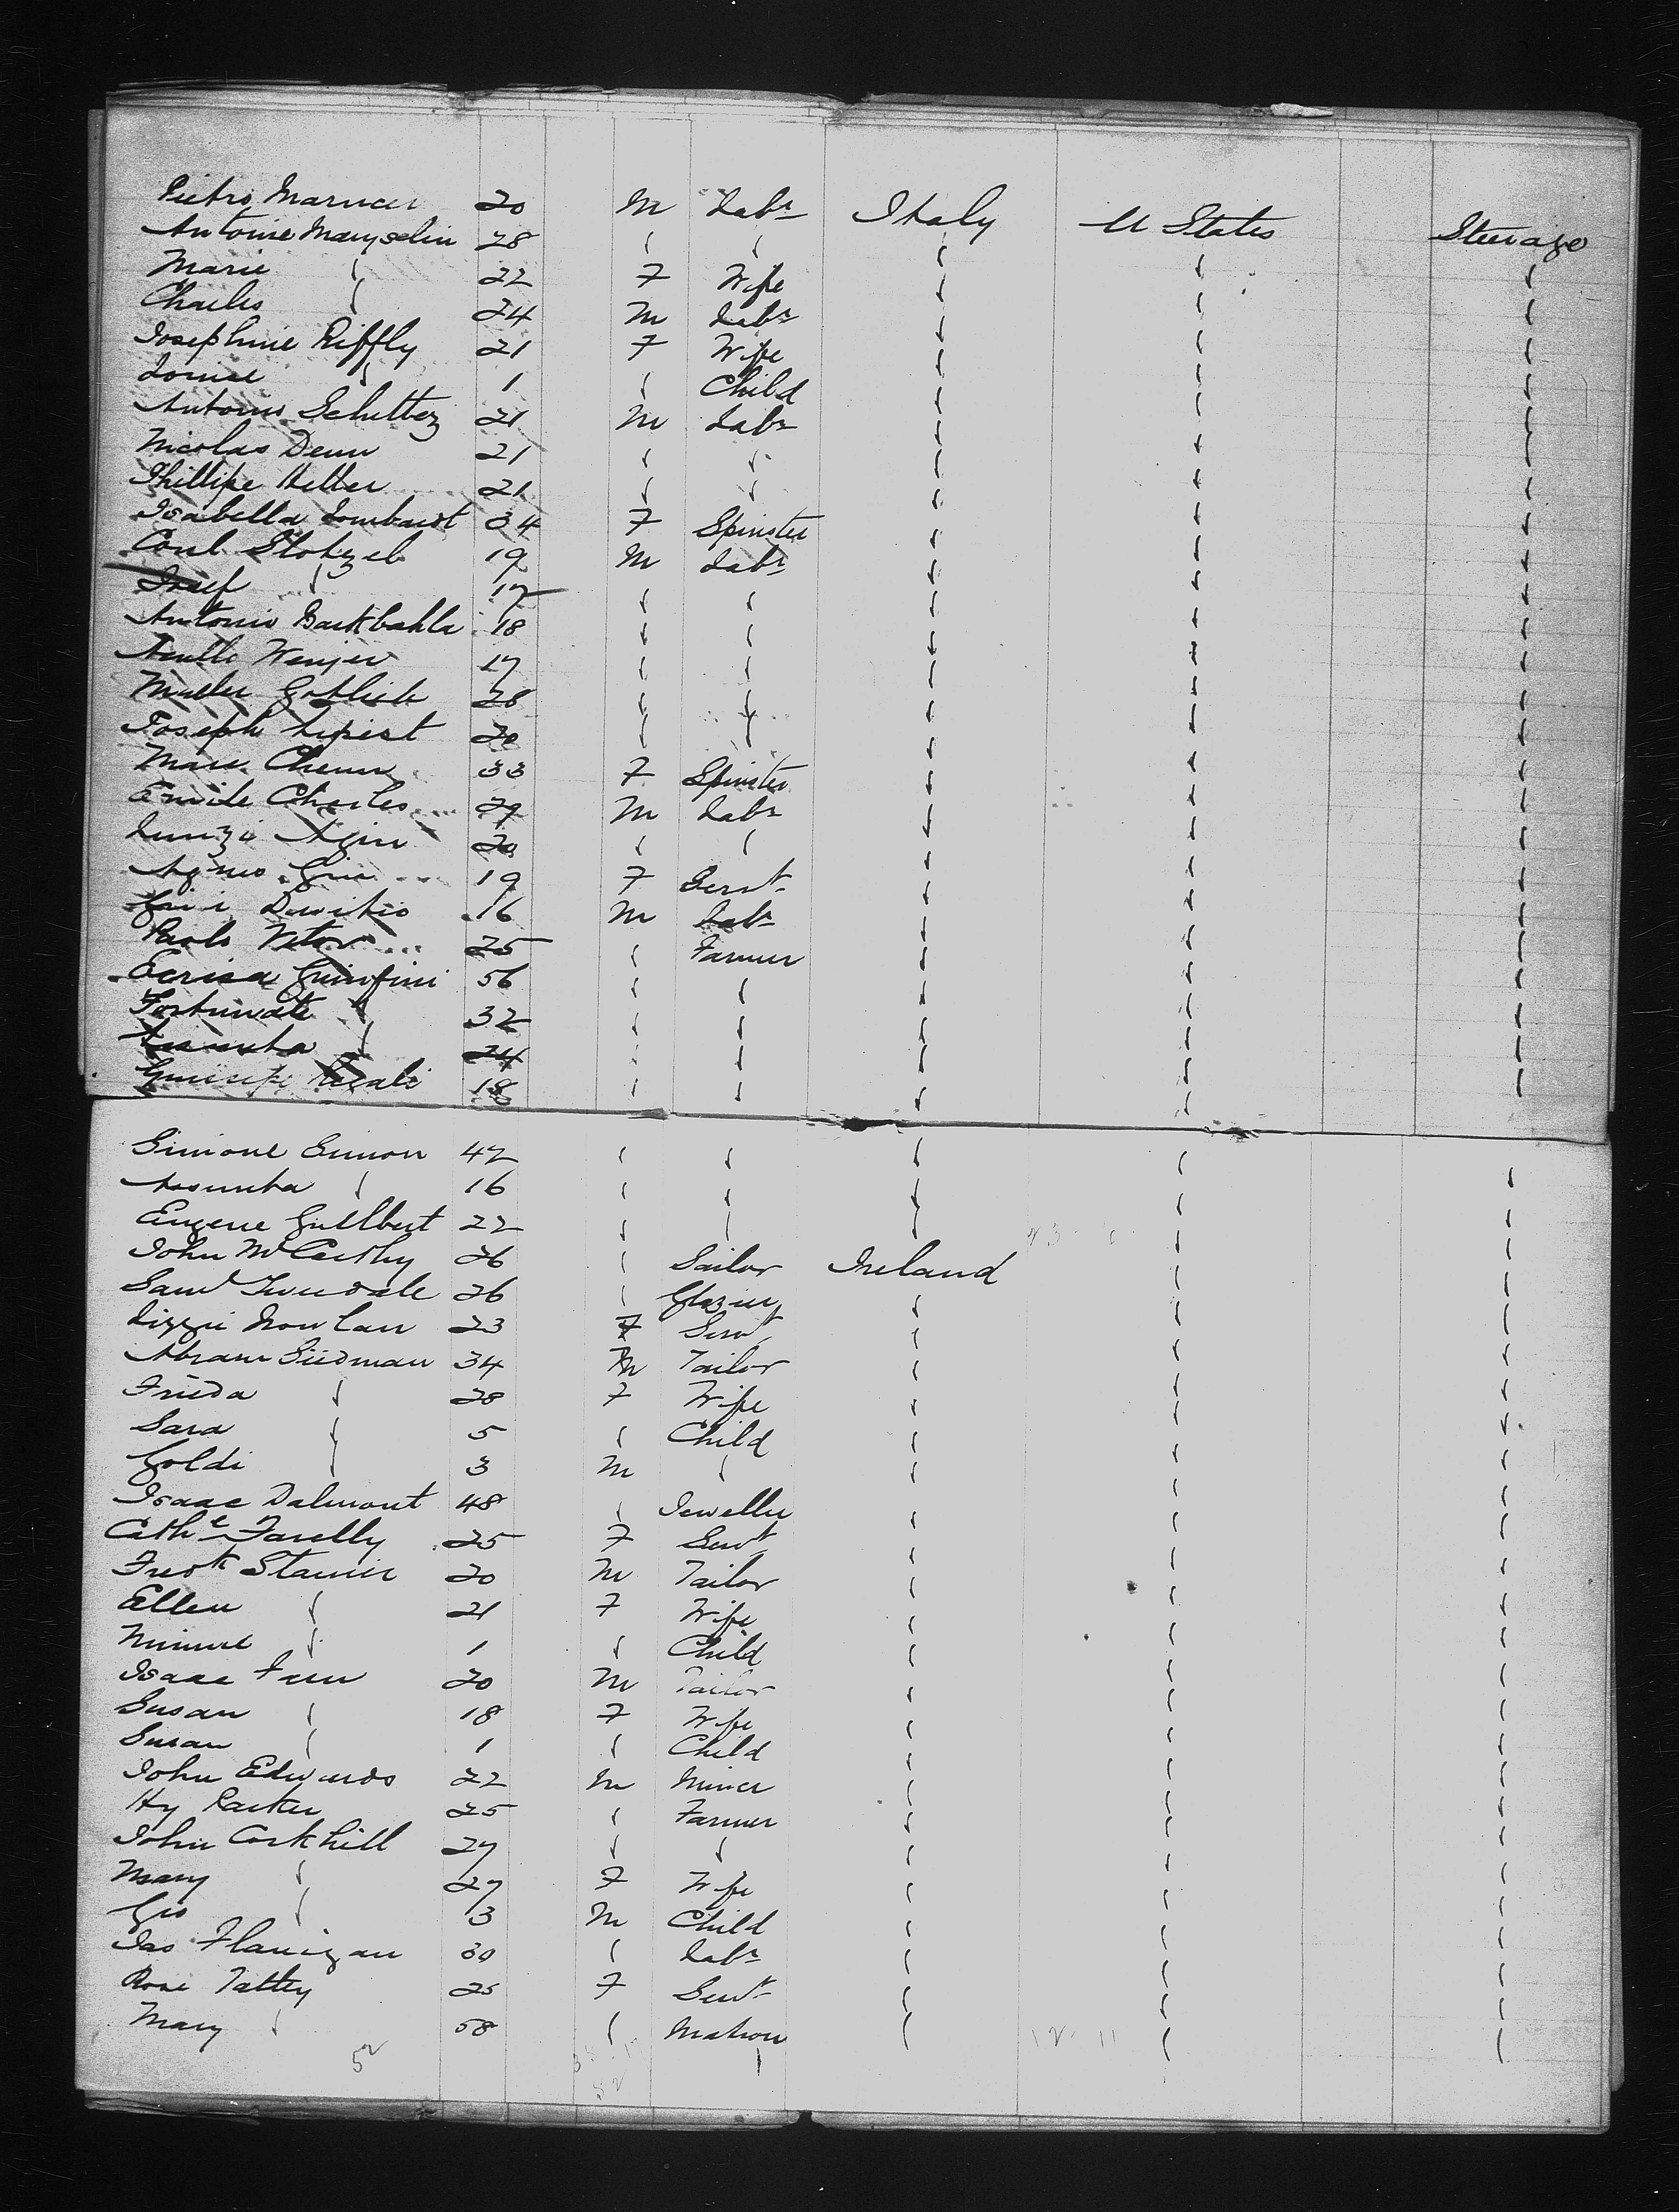 Pietro 20 M Labr Italy U States Steerage
Antoine 28 " " " " "
Marie " 22 F Wife " " "
Charles " 24 M Labr " " "
Josephine Riffly 21 F Wife " " "
Louise " 1 " Child " " "
Antonio 21 M Labr " " "
Nicolas 21 " " " " "
Phillipe Heller 21 " " " " "
Isabella Lombardt 34 F Spinster " " "
Stotzel 19 M Labr " " "
Josef " 17 " " " " "
Antonio 18 " " " " "
17 " " " " "
Muller Gottlieb 28 " " " " "
Joseph 20 " " " " "
33 F Spinster " " "
Emile Charles 29 M Labr " " "
20 " " " " "
Agnes 19 F Servt " " "
16 M Labr " " "
Paolo Vitor 25 " Farmer " " "
56 " " " " "
Fortunate " 32 " " " " "
Assunta " 24 " " " " "
18 " " " " "
Simone Simon 42 " " " " "
Assunta " 16 " " " " "
Eugene Gullbert 22 " " " " "
John McCarthy 26 " Sailor Ireland " "
Saml Tweedale 26 " Glazier " " "
Lizzie Nowlan 23 F Servt " " "
Abram Siedman 34 M Tailor " " "
Frieda " 28 F Wife " " "
Sara " 5 " Child " " "
Goldi " 3 M " " " "
Isaac Dalmont 48 " Jeweller " " "
Cathe Farelly 25 F Servt " " "
Fredk Stamer 20 M Tailor " " "
Ellen " 21 F Wife " " "
Minnie " 1 " Child " " "
Isaac 20 M Tailor " " "
Susan " 18 F Wife " " "
Susan " 1 " Child " " "
John Edwards 22 M Miner " " "
Hy Parker 25 " Farmer " " "
John Corkhill 27 " " " " "
Mary " 27 F Wife " " "
Geo " 3 M Child " " "
Jas Flanigan 30 " Labr " " "
Rose Tattey 25 F Servt " " "
Mary " 58 " Matron " " "
52